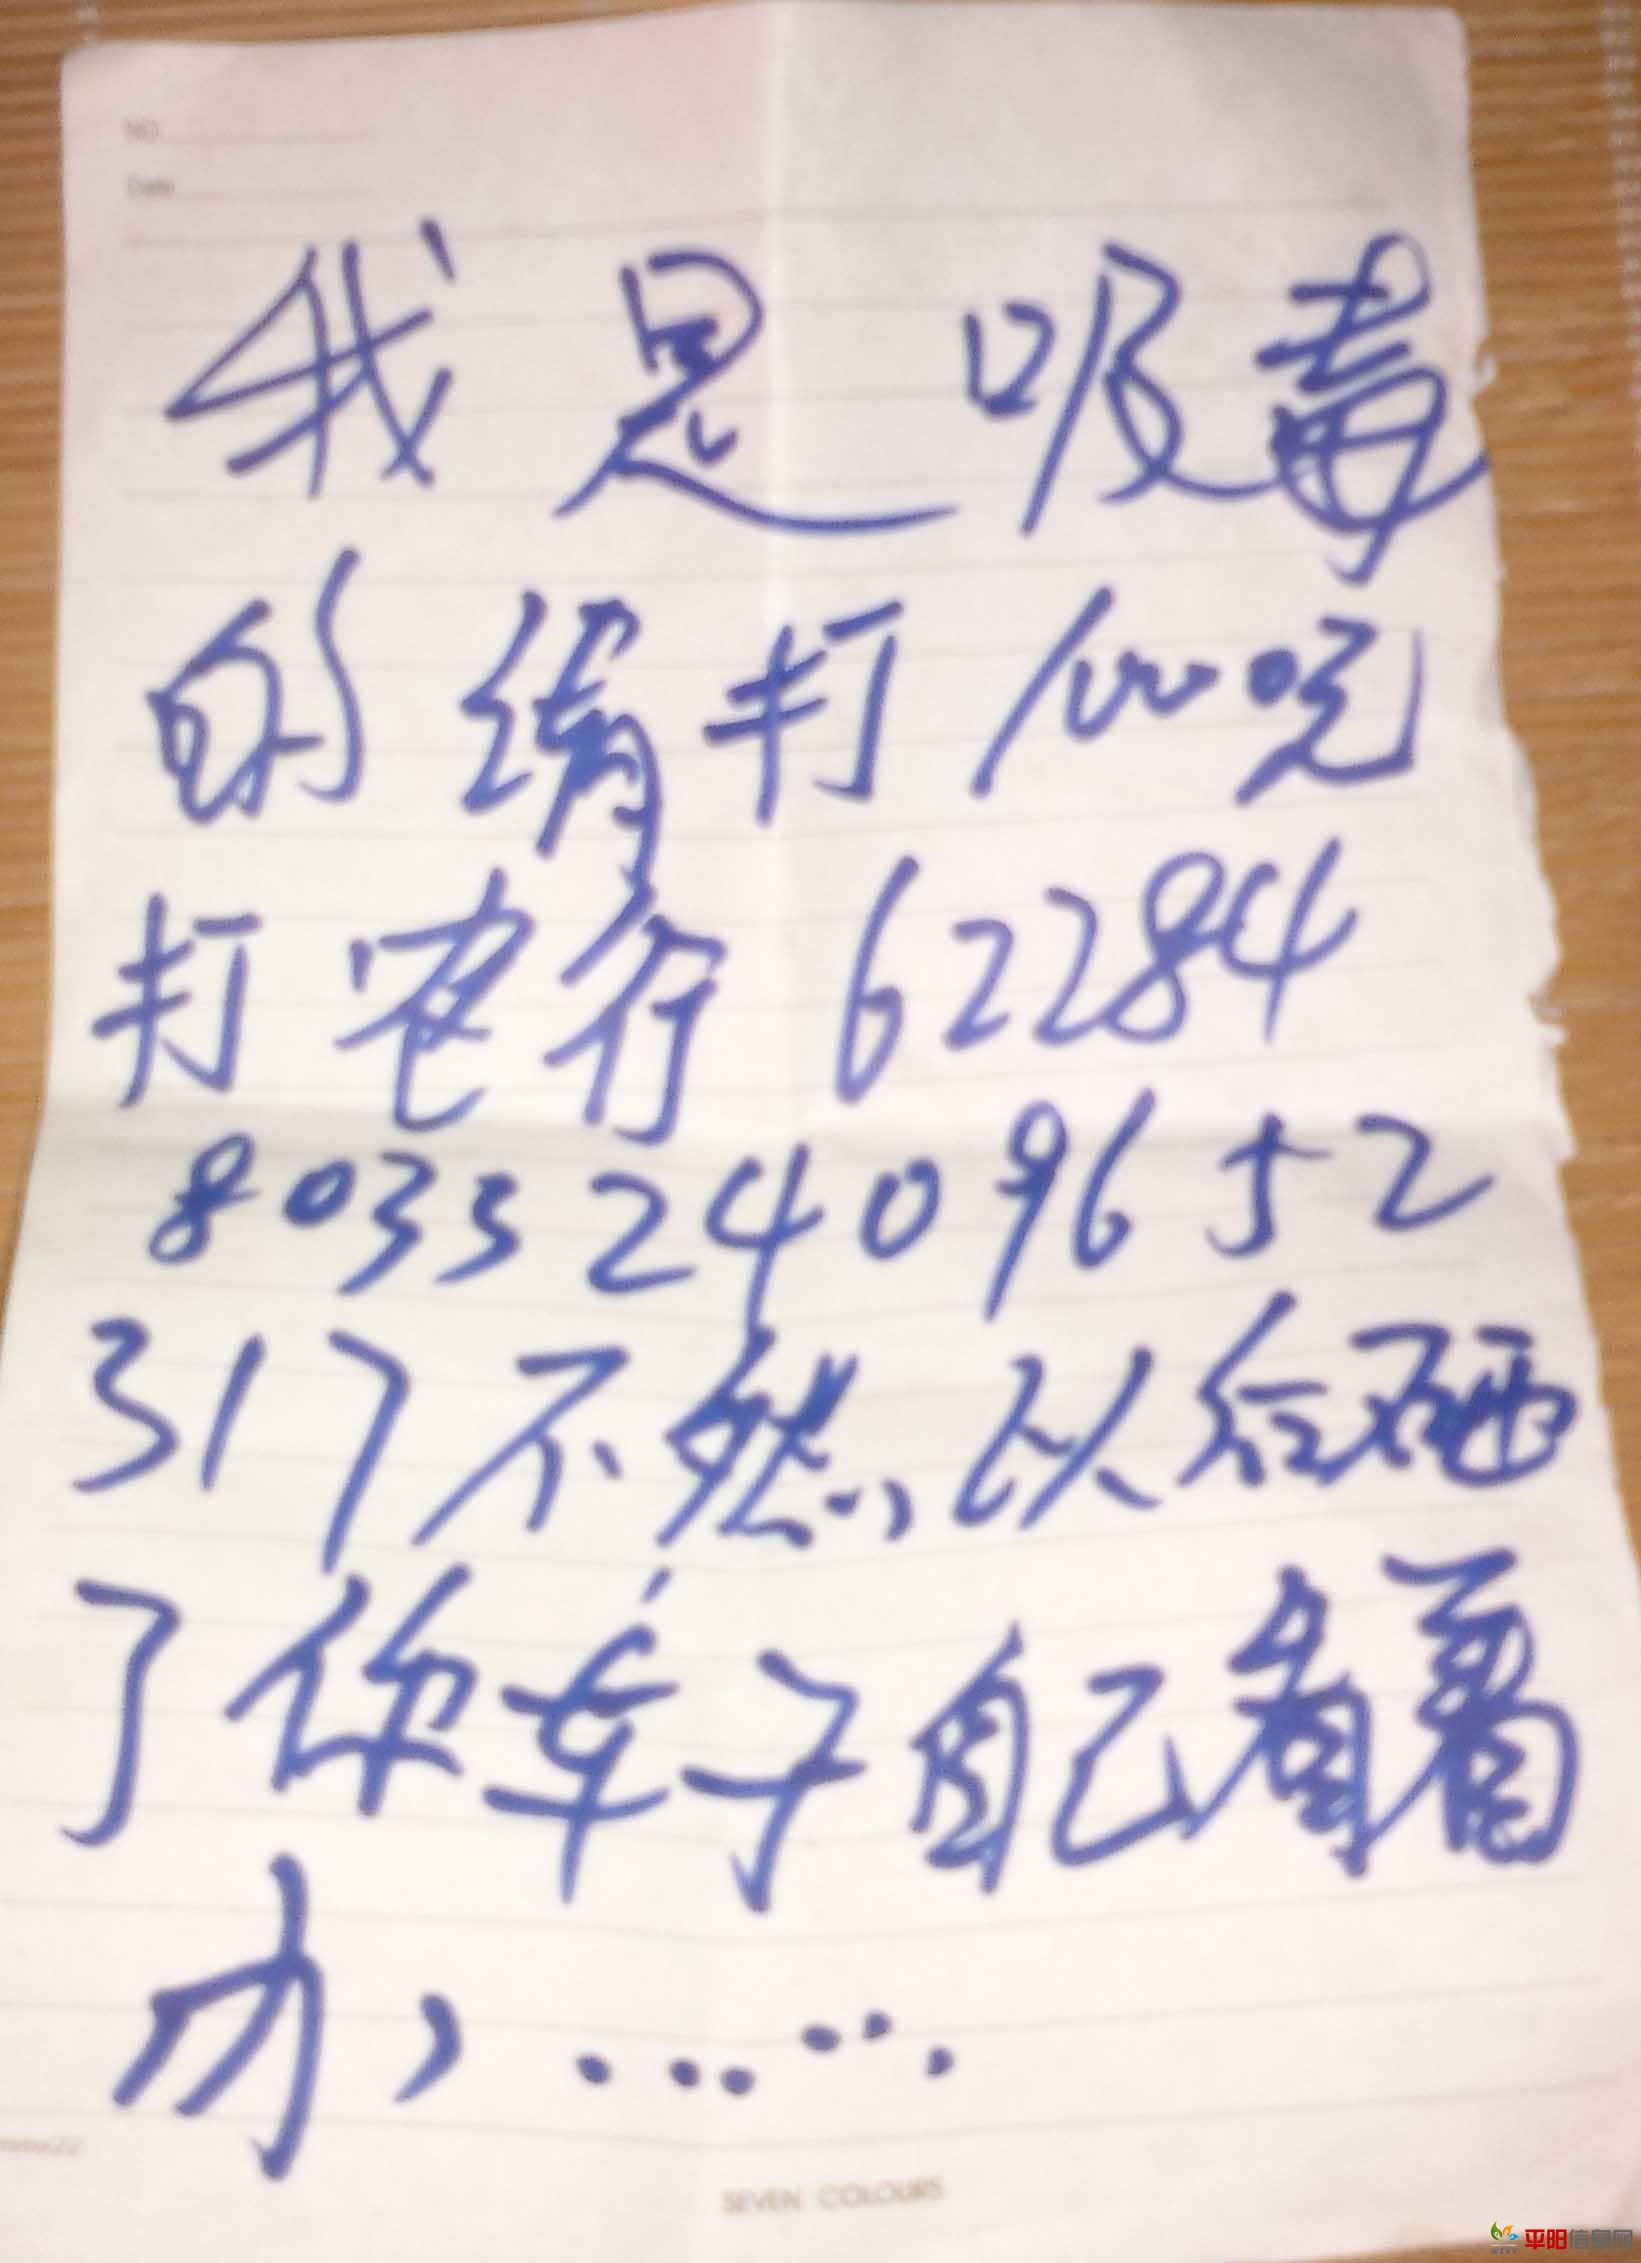 NO
Date
我是吸毒
的请打1000元
打农行62284
80332409652
317不然,以后硒
了你车子自己看着
办,......
SEVEN COLOURS
平阳信息网
WZPY